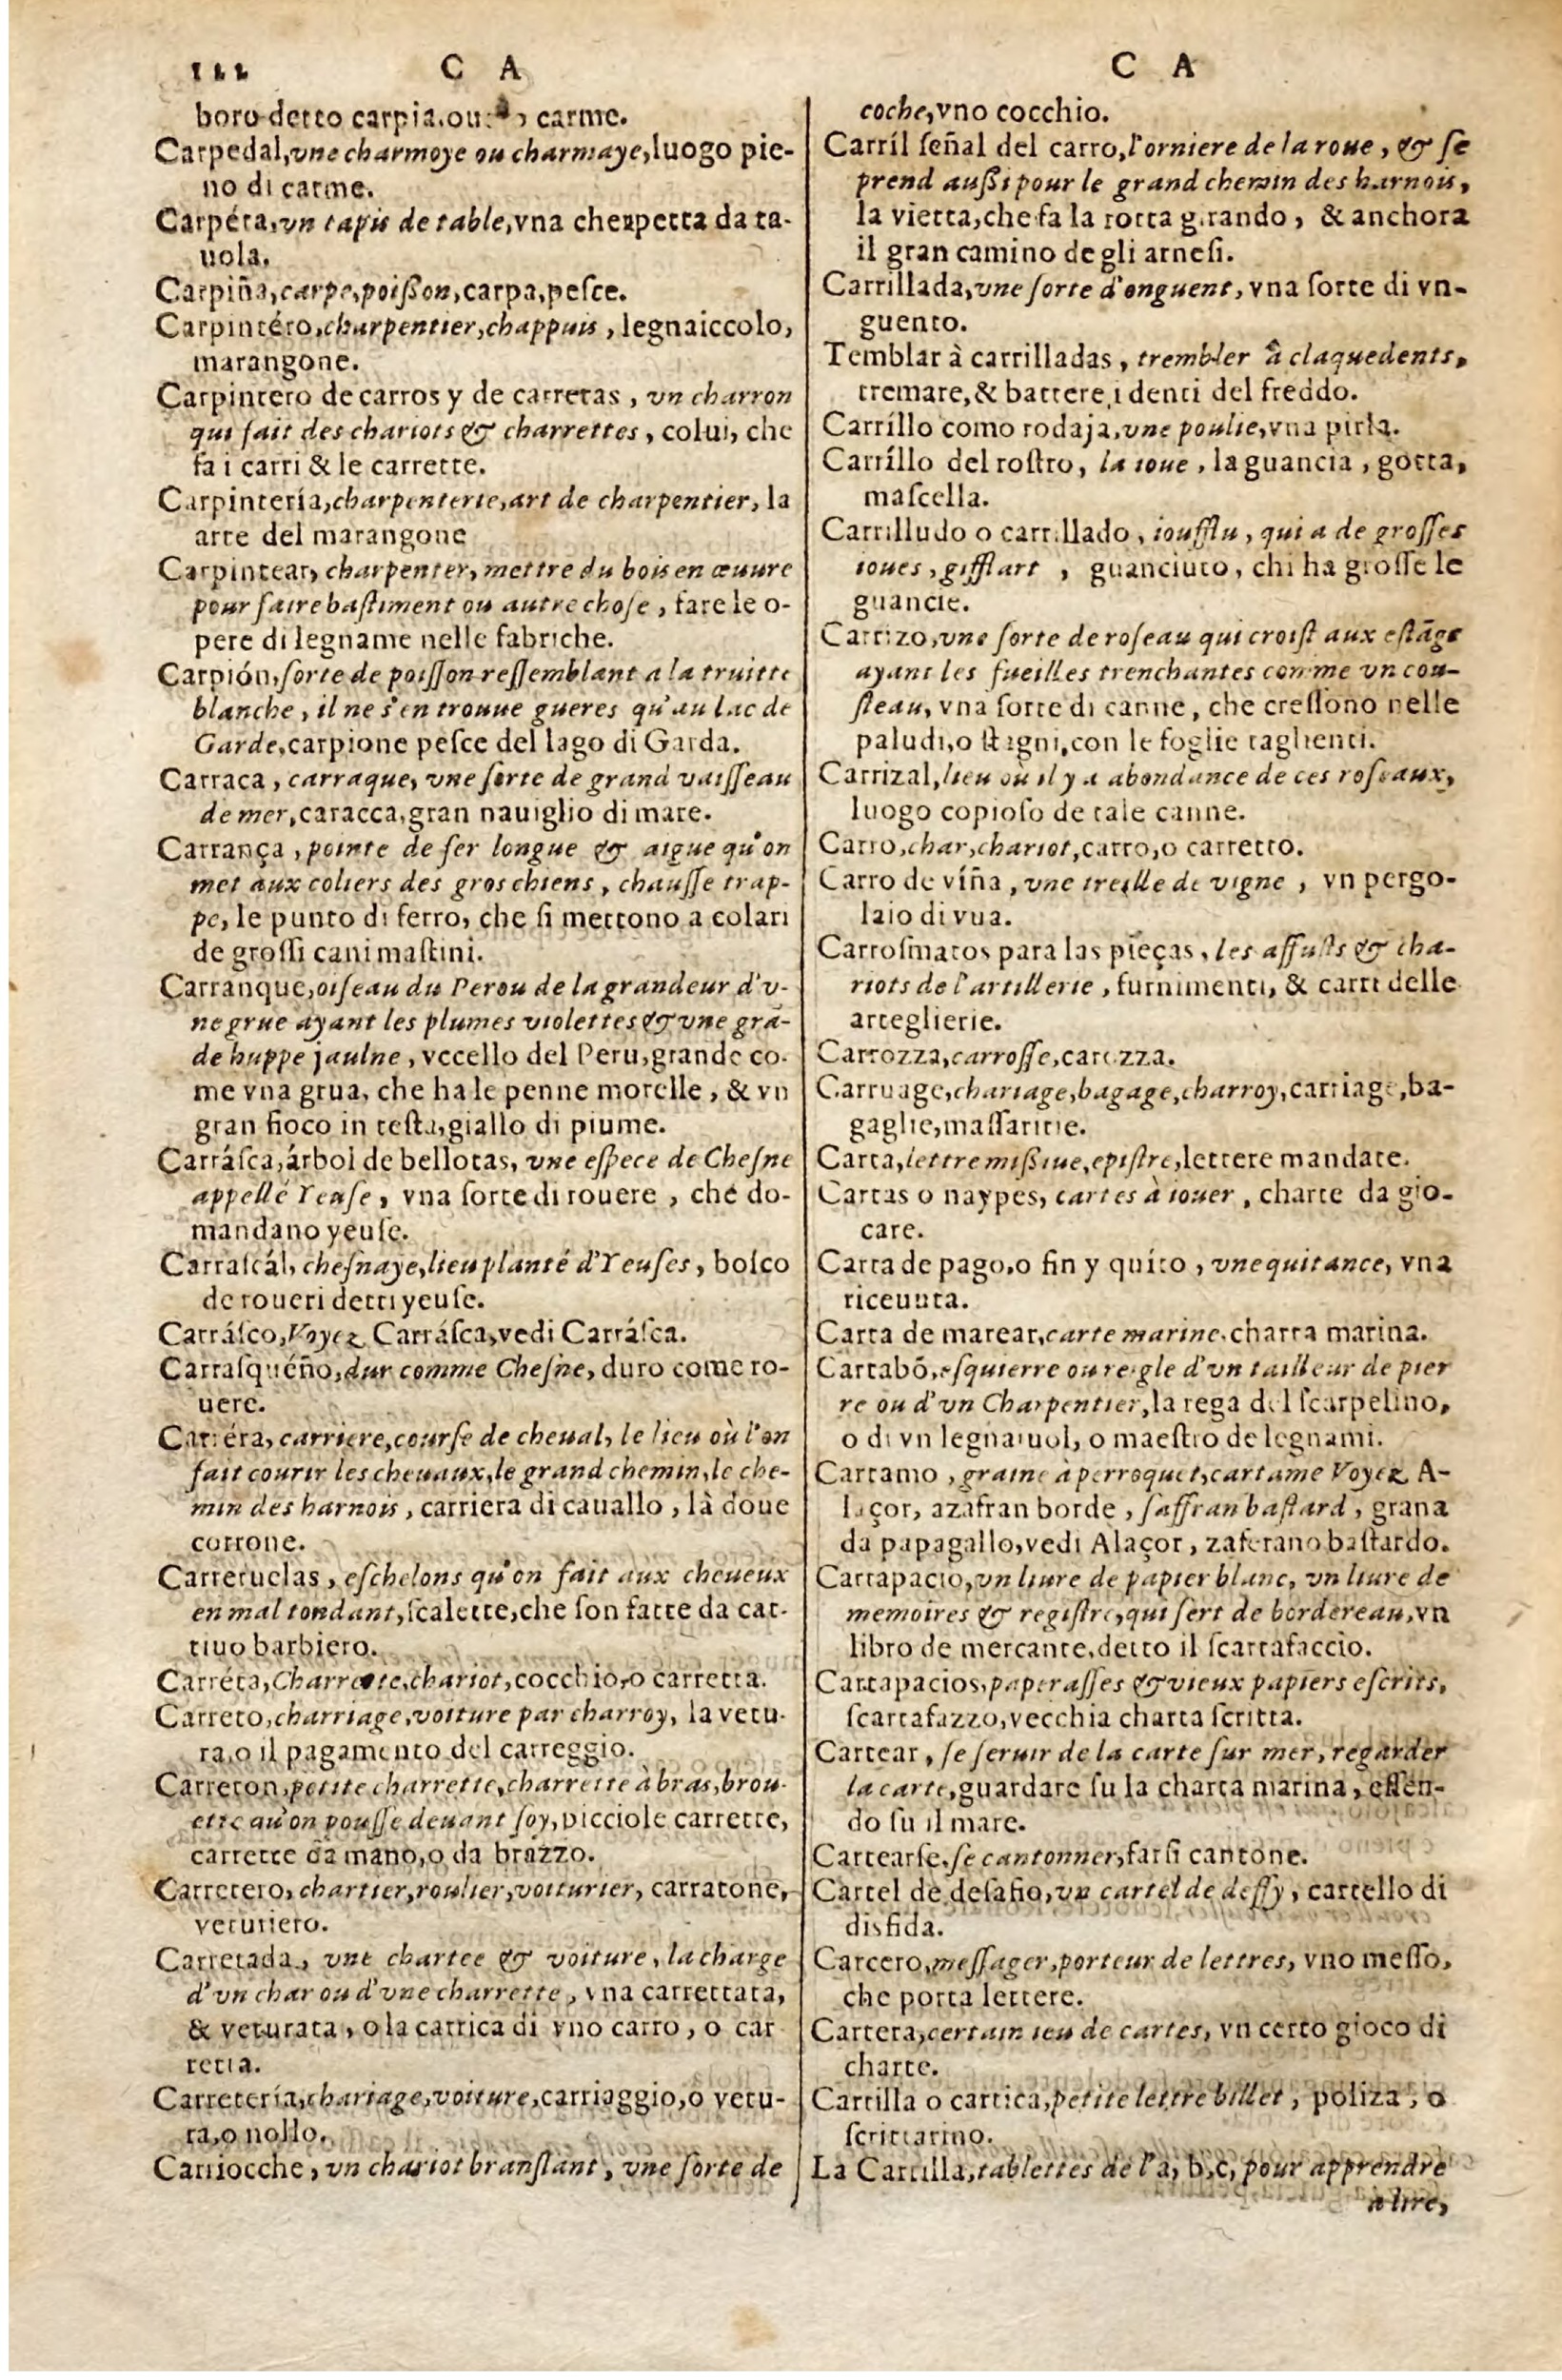 C A
C A
boro detto carpia, carme.
Carpedal, vne charmoye ou charmaye, luogo pie-
no di carme.
Carpéta, vn tapis de table, vna chespetta da ta-
uola.
Carpiña, carpe, poißon, carpa, pesce.
Carpintéro, charpentier, chappuis, legnaiccolo,
marangone.
Carpintero de carros y de carretas, vn charron
qui fait des chariots & charrettes, colui, che
fa i carri & le carrette.
Carpintería, charpenterie, art de charpentier, la
arte del marangone
Carpintear, charpenter, mettre du bois en œuure
pour faire bastiment ou autre chose, fare le o-
pere di legname nelle fabriche.
Carpión, sorte de poisson ressemblant a la truitte
blanche, il ne s'en trouue gueres qu'au lac de
Garde, carpione pesce del lago di Garda.
Carraca, carraque, vne sorte de grand vaisseau
de mer, caracca, gran nauiglio di mare.
Carrança, pointe de fer longue & aigue qu'on
met aux coliers des gros chiens, chausse trap-
pe, le punto di ferro, che si mettono a colari
de grossi cani mastini.
Carranque, oiseau du Perou de la grandeur d'v-
ne grue ayant les plumes violettes & vne grā-
de huppe jaulne, vccello del Peru, grande co-
me vna grua, che ha le penne morelle, & vn
gran fioco in testa, giallo di piume.
Carrásca, árbol de bellotas, vne espece de Chesne
appellé Yeuse, vna sorte di rouere, che do-
mandano yeuse.
Carrascál, chesnaye, lieu planté d'Yeuses, bosco
de roueri detti yeuse.
Carrásco, Voyez Carrásca, vedi Carrásca.
Carrasquéño, dur comme Chesne, duro come ro-
uere.
Carréra, carriere, course de cheual, le lieu où l'on
fait courir les cheuaux, le grand chemin, le che-
min des harnois, carriera di cauallo, là doue
corrone.
Carreruelas, eschelons qu'on fait aux cheueux
en mal tondant, scalette, che son fatte da cat-
tiuo barbiero.
Carréta, Charrete, chariot, cocchio, o carretta.
Carreto, charriage, voiture par charroy, la vetu-
ra, o il pagamento del carreggio.
Carreton, petite charrette, charrette à bras, brou-
ette qu'on pousse deuant soy, picciole carrette,
carrette da mano, o da brazzo.
Carretero, chartier, roulier, voiturier, carratone,
veturiero.
Carretada, vne chartee & voiture, la charge
d'vn char ou d'vne charrette, vna carrettata,
& veturata, o la carrica di vno carro, o car
retta.
Carretería, chariage, voiture, carriaggio, o vetu-
ra, o nollo.
Carriocche, vn chariot branslant, vne sorte de
coche, vno cocchio.
Carríl señal del carro, l'orniere de la roue, & se
prend außi pour le grand chemin des harnois,
la vietta, che fa la rotta girando, & anchora
il gran camino degli arnesi.
Carrillada, vne sorte d'onguent, vna sorte di vn-
guento.
Temblar à carrilladas, trembler à claquedents,
tremare, & battere i denti del freddo.
Carríllo como rodaja, vne poulie, vna pirla.
Carríllo del rostro, la ioue, la guancia, gotta,
mascella.
Carrilludo o carrillado, ioufflu, qui a de grosses
ioues, gifflart, guanciuto, chi ha grosse le
guancie.
Carrizo, vne sorte de roseau qui croist aux estāgs
ayant les fueilles trenchantes comme vn cou-
steau, vna sorte di canne, che cressono nelle
paludi, o stagni, con le foglie taglienti.
Carrizal, lieu où il y a abondance de ces roseaux,
luogo copioso de tale canne.
Carro, char, chariot, carro, o carretto.
Carro de víña, vne treille de vigne, vn pergo-
laio di vua.
Carrosmatos para las pieças, les affusts & cha-
riots de l'artillerie, furnimenti, & carri delle
arteglierie.
Carrozza, carrosse, carozza.
Carruage, chariage, bagage, charroy, carriage, ba-
gaglie, massaritie.
Carta, lettre mißiue, epistre, lettere mandate.
Cartas o naypes, cartes à iouer, charte da gio-
care.
Carta de pago, o fin y quíto, vne quitance, vna
riceuuta.
Carta de marear, carte marine, charta marina.
Cartabō, esquierre ou reigle d'vn tailleur de pier
re ou d'vn Charpentier, la rega del scarpelino,
o di vn legnaiuol, o maestro de legnami.
Cartamo, graine à perroquet, cartame Voyez A-
laçor, azafran borde, saffran bastard, grana
da papagallo, vedi Alaçor, zaferano bastardo.
Cartapacio, vn liure de papier blanc, vn liure de
memoires & registre, qui sert de bordereau, vn
libro de mercante, detto il scartafaccio.
Cartapacios, paperasses & vieux papiers escrits,
scartafazzo, vecchia charta scritta.
Cartear, se seruir de la carte sur mer, regarder
la carte, guardare su la charta marina, essen-
do su il mare.
Cartearse, se cantonner, farsi cantone.
Cartel de desafio, vn cartel de deffy, cartello di
disfida.
Cartero, messager, porteur de lettres, vno messo,
che porta lettere.
Cartera, certain ieu de cartes, vn certo gioco di
charte.
Cartilla o cartica, petite lettre billet, poliza, o
scrittarino.
La Cartilla, tablettes de l'a, b, c, pour apprendre
a lire,